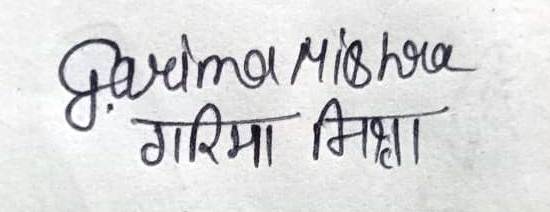 Garima Mishra
गरिमा मिश्रा